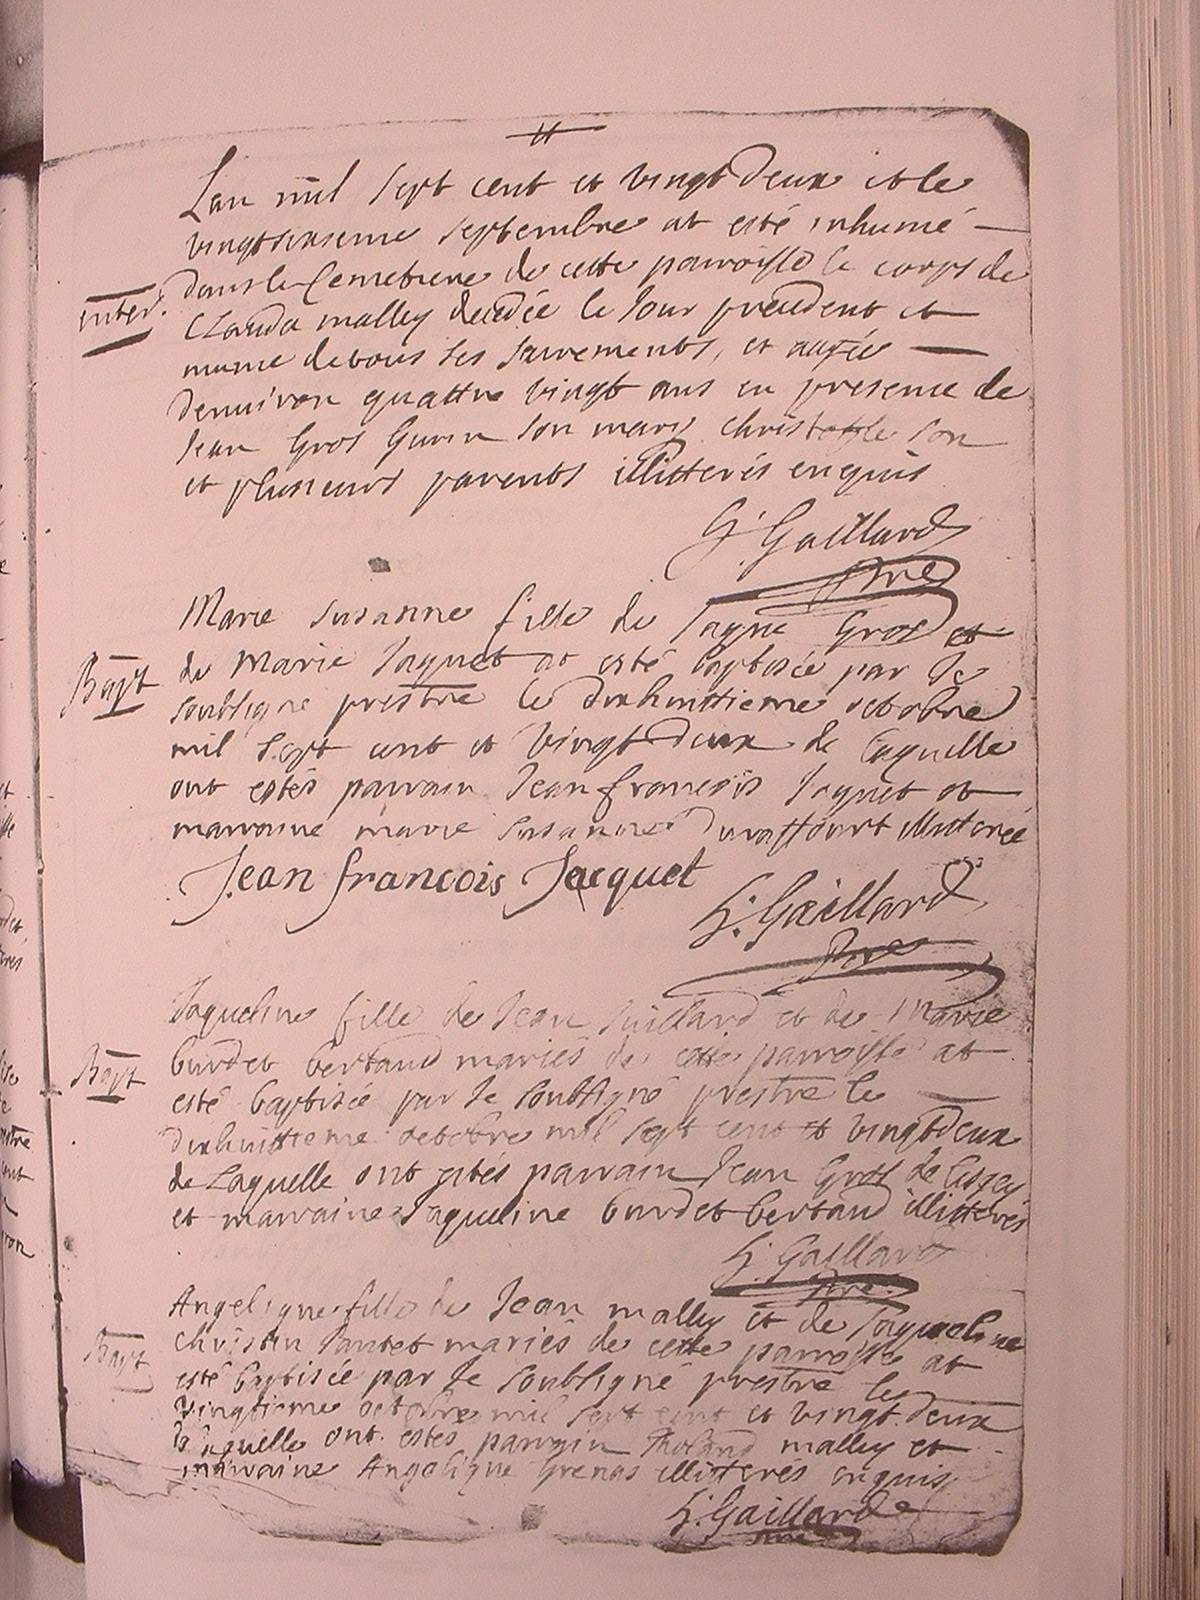 Lan mil sept cent et vingt Deux et le
vingtsixieme septembre at esté inhumé
dans le Cemetiere de cette parroisse le corps de
inter.
Clauda malley decedée le Jour precedent et
munie de tous ses sacrements, et augée
denuiron quattre vingt ans en presence de
Jean Gros Gurin son mary christofle son
et plusieurs parents illitterés enquis
G: Gaillard
Pre
Marie Susanne fille de Jaque Gros et
Bapt
de Marie Jaquet at esté baptisée par Je
soubsigne prestre le dixhuittieme octobre
mil sept cent et Vingt Deux de Laquelle
ont estés parrain Jean francois Jaquet et
marraine marie Susanne Duraffourt illiterée
Jean francois Jacquet
G: Gaillard
Pre
Jaqueline fille de Jean Juillard et de marie
Bapt
burdet bertaud mariés de cette parroisse at
esté baptisée par Je soubsigné prestre le
dixhuittieme octobre mil sept cent et vingtdeux
de Laquelle ont estés parrain Jean Gros de
et marraine Jaqueline burdet bertaud illitterés
G: Gaillard
Pre
Angelique fille de Jean malley et de Jaqueline
Bapt
christin mariés de cette parroisse at
esté baptisée par Je soubsigné prestre le
vingtieme octobre mil sept cent et vingt deux
de Laquelle ont estés parrain malley et
marraine Angelique Grenas illitterés enquis
G: Gaillard
Pre